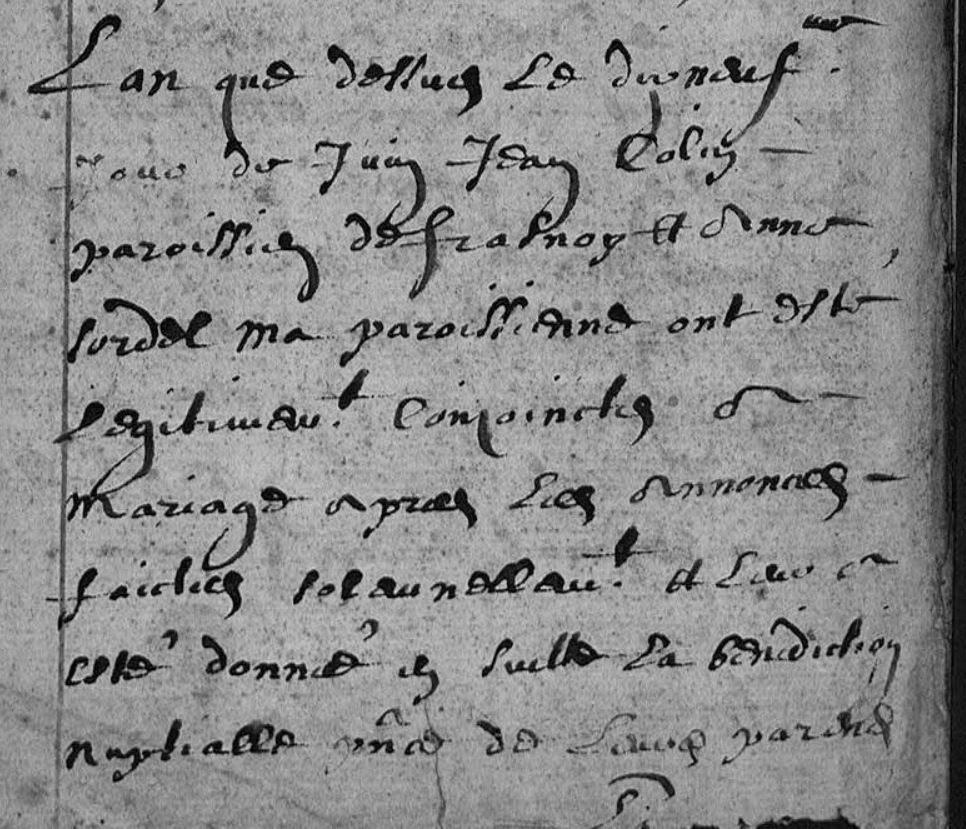 Lan que dessus Le dixneuf
jour de Juin Jean Colin
paroissien de frasnoy et Anne
sordel ma paroissienne ont esté
Legitimem.t Conjoinctes en
Mariage apres Les Annonces
faictes solemnellem.t et Leur a
esté donnée en suitte La benediction
nuptialle pn̄ce de Leurs parens